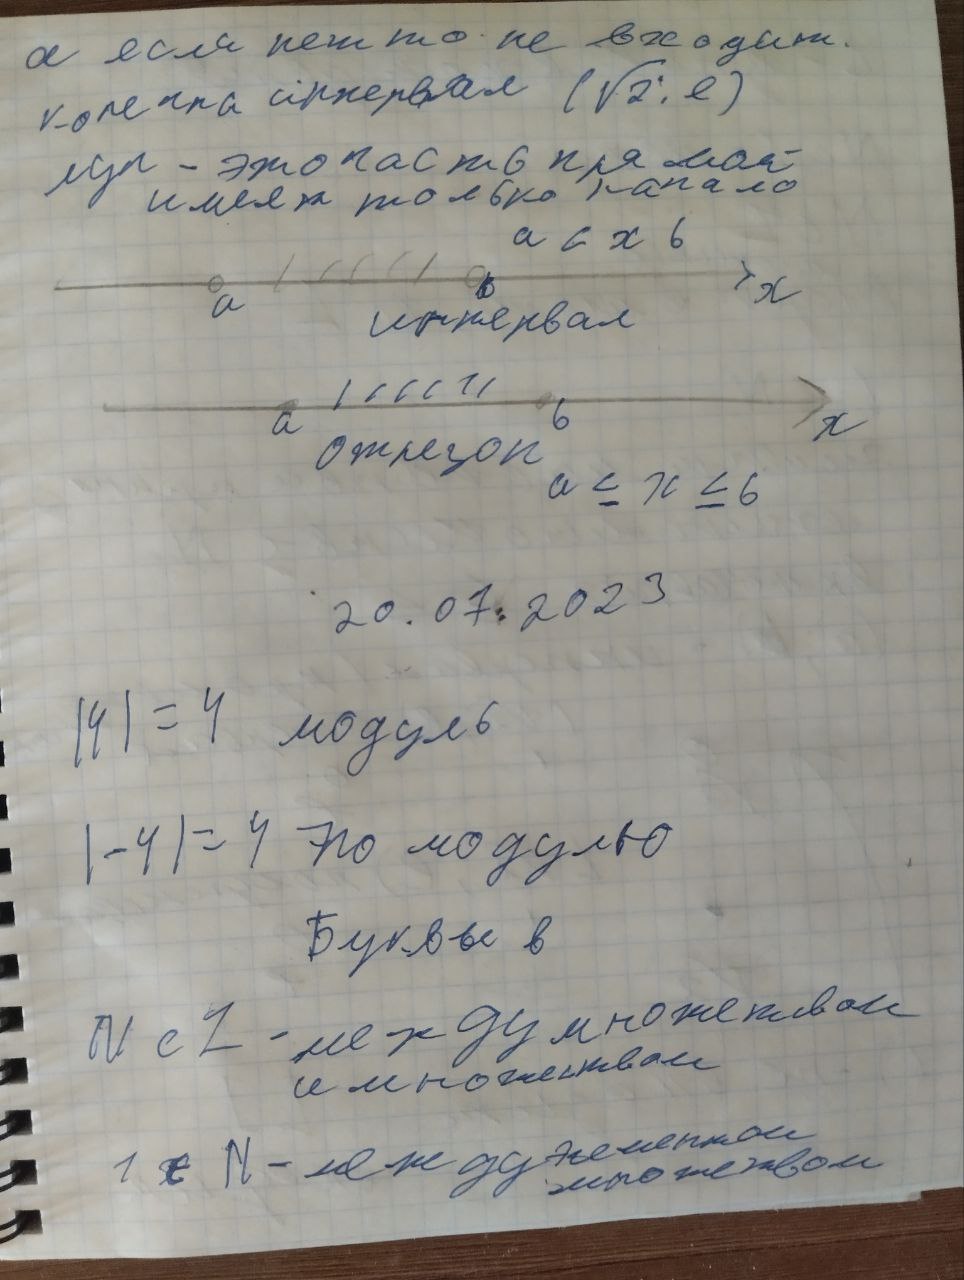 а если нет то не входит.
конечна интервал (√2; e)
луч - это часть прямой
имеят только начало
a < x b
a b x
интервал
a b x
отрезок
a ≤ x ≤ b
20.07.2023
|4| = 4 модуль
|-4| = 4 по модулю
Буквы в
N c Z - между множеством
и множеством
1 ∈ N - между элементом
множеством